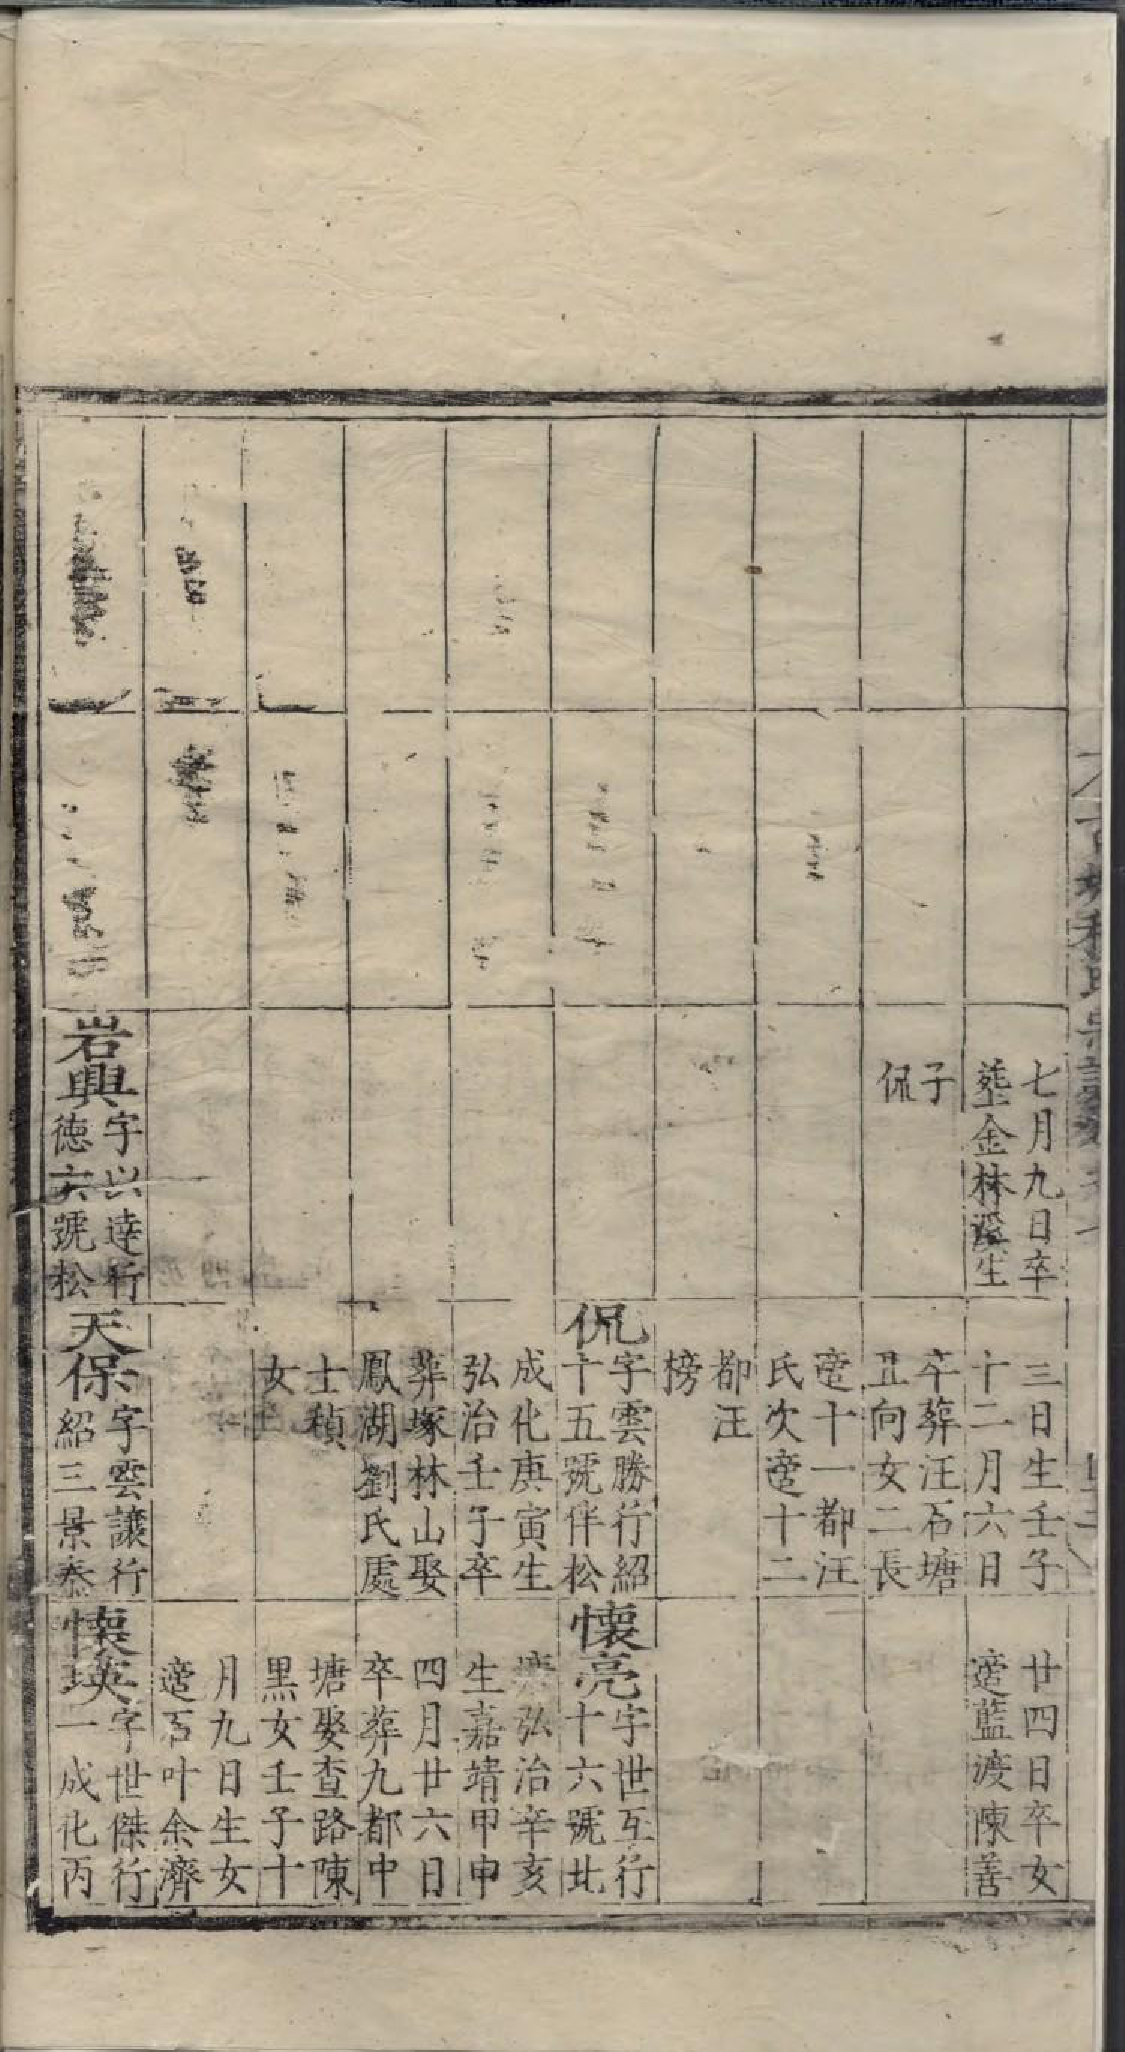 七月九日卒
塟金林溪生
子
侃
岩興
字以達行
德六號松
三日生壬子
十二月六日
卒葬汪石塘
丑向女二長
適十一都汪
氏次適十二
都汪
榜
侃
字雲勝行紹
十五號伴松
成化庚寅生
弘治壬子卒
葬塚林山娶
鳳湖劉氏處
士穔
女
天保
字雲讓行
紹三景泰
廿四日卒女
適藍渡陳善
懷亮
字世互行
十六號北
弘治辛亥
生嘉靖甲申
四月廿六日
卒葬九都中
塘娶查路陳
黑女壬子十
月九日生女
適石叶余濟
懷瑛
字世傑行
一成化丙